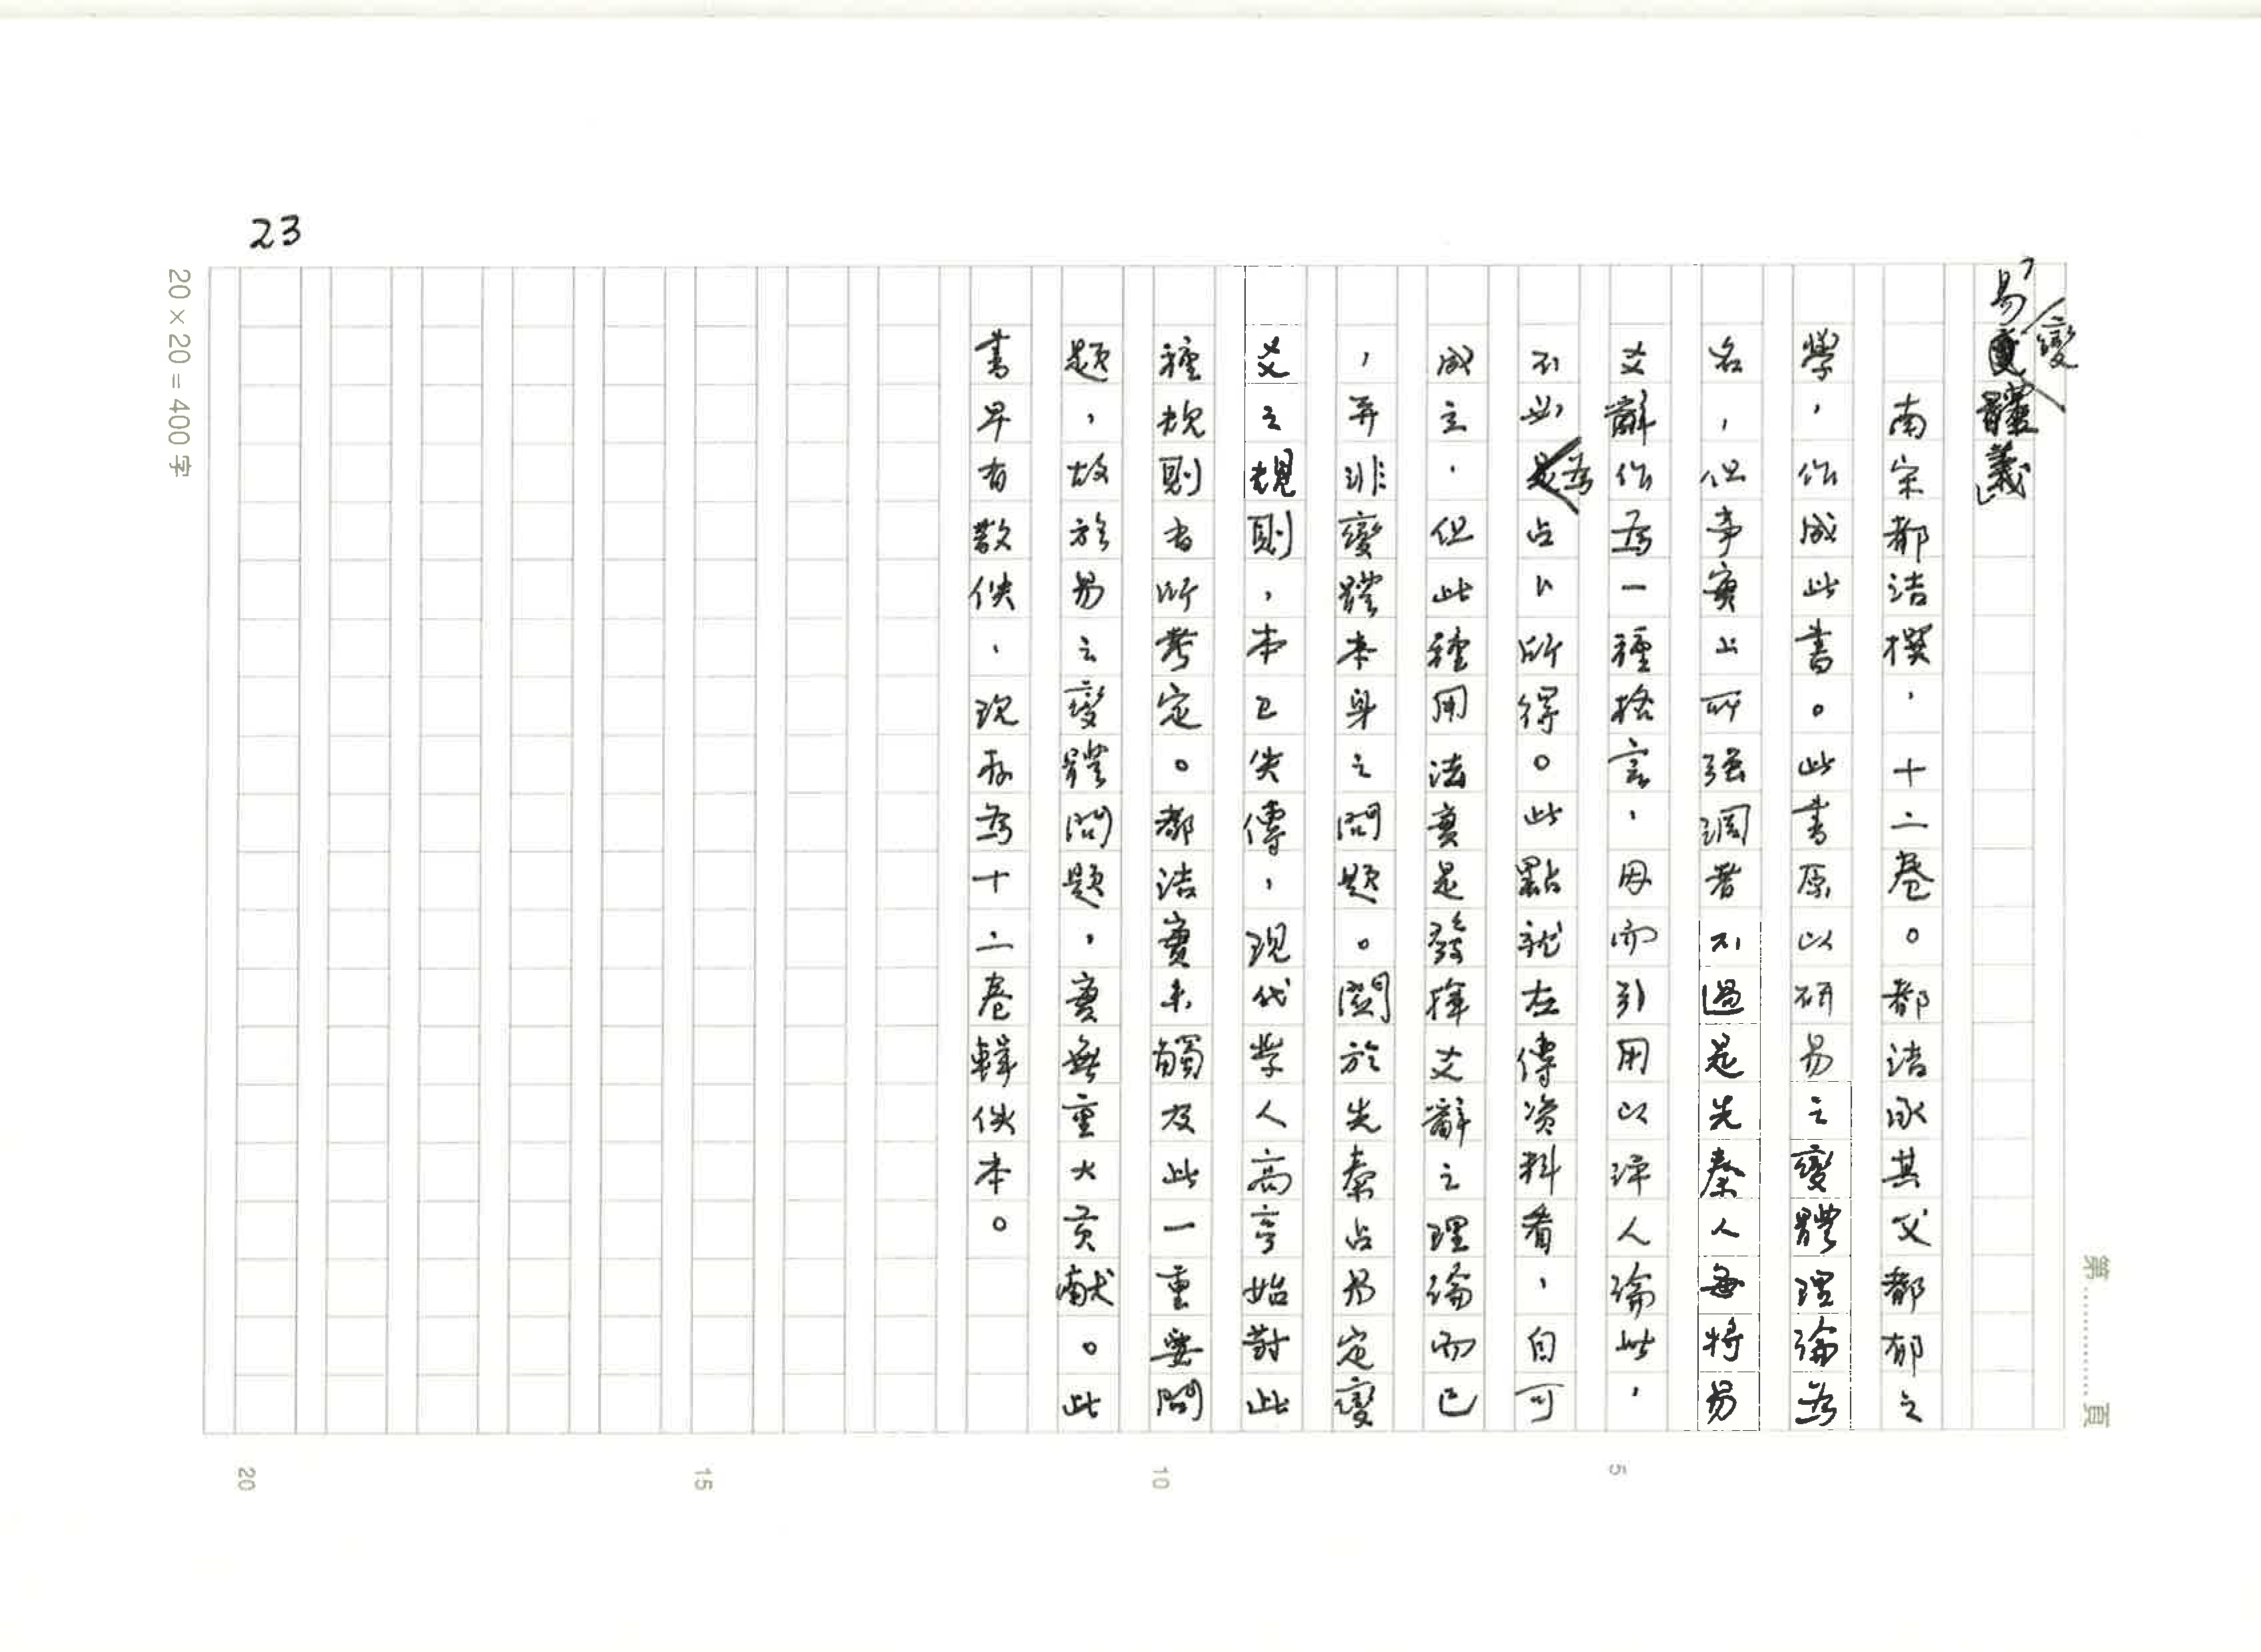 23
「易變體義」
南宋都洁撰，十二卷。都洁承其父都郁之
學，作成此書。此書原以研易之變體理論為
名，但事實上所強調者不過是先秦人每將易
爻辭作為一種格言，因而引用以評人論此，
不必為占卜所得。此點就左傳資料看，自可
成立，但此種用法實是發揮爻辭之理論而已
，并非變體本身之問題。關於先秦占易定變
爻之規則，本已失傳，現代學人高亨始對此
種規則有所考定。都洁實未觸及此一重要問
題，故於易之變體問題，實無重大貢獻。此
書早有散佚，現存為十二卷輯佚本。
20×20＝400字
第............頁
5
10
15
20